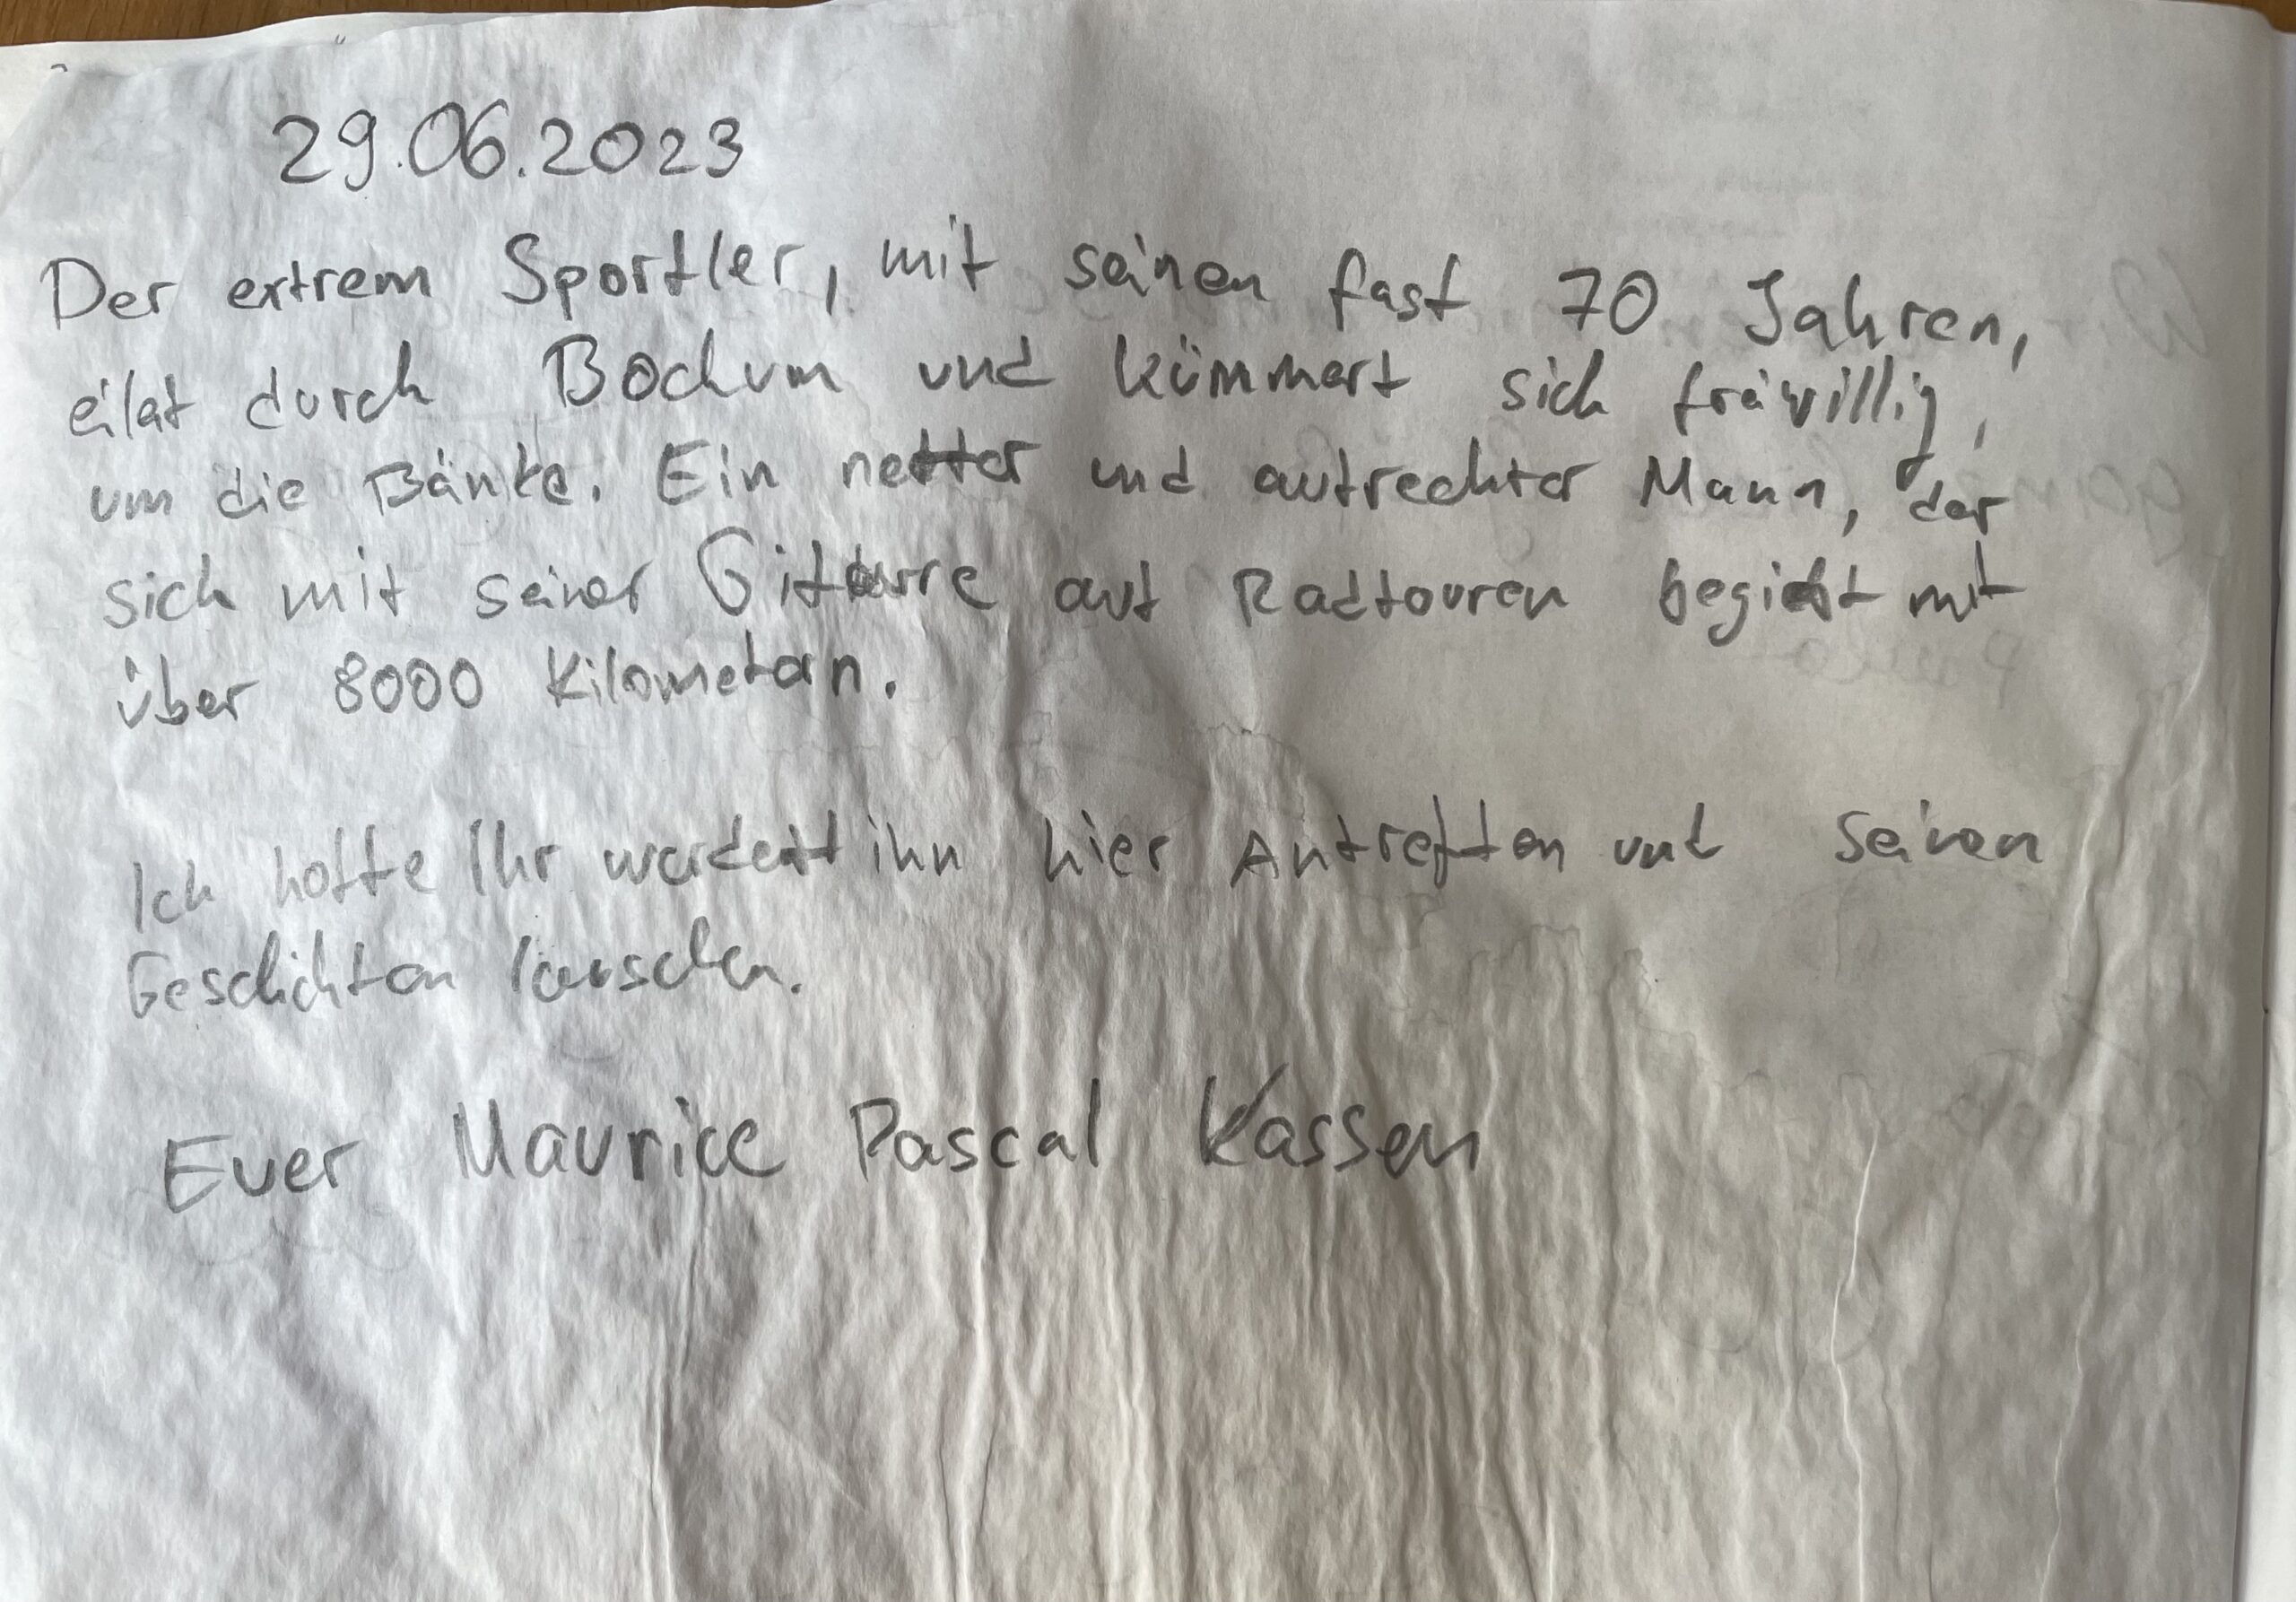 29.06.2023
Der extrem Sportler, mit seinen fast 70 Jahren,
eilet durch Bochum und kümmert sich freiwillig,
um die Bänke. Ein netter und aufrechter Mann, der
sich mit seiner Gitarre auf Radtouren begiebt mit
über 8000 Kilometern.
Ich hoffe Ihr werdet ihn hier Antreffen und seinen
Geschichten lauschen.
Euer Maurice Pascal Kassen